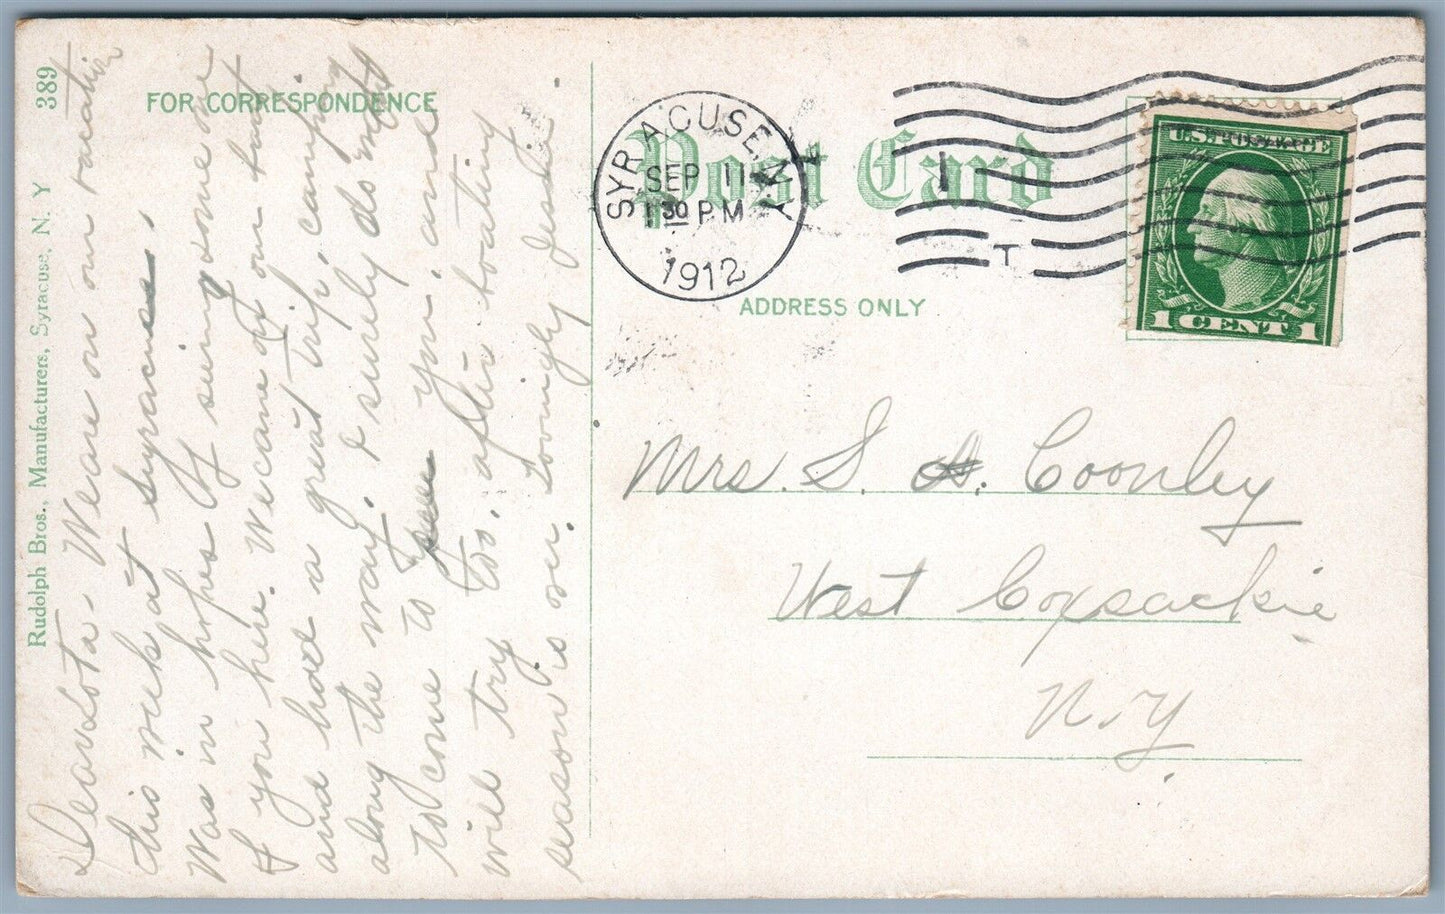 389
Rudolph Bros., Manufacturers, Syracuse, N. Y
FOR CORRESPONDENCE
Dear Lota. We are on our vacation
this week at Syracuse.
Was in hopes of seeing some one
of you here. We came on our boat
and had a great trip, camping
along the way. I surely do want
to come to see you, and
will try to, after boating
season is over. Lovingly Jessie
Post Card
SYRACUSE, N.Y.
SEP 11
1 30 P.M.
1912
1
T
U.S. POSTAGE
1 CENT 1
ADDRESS ONLY
Mrs. S. A. Coonley
West Coxsackie
N.Y